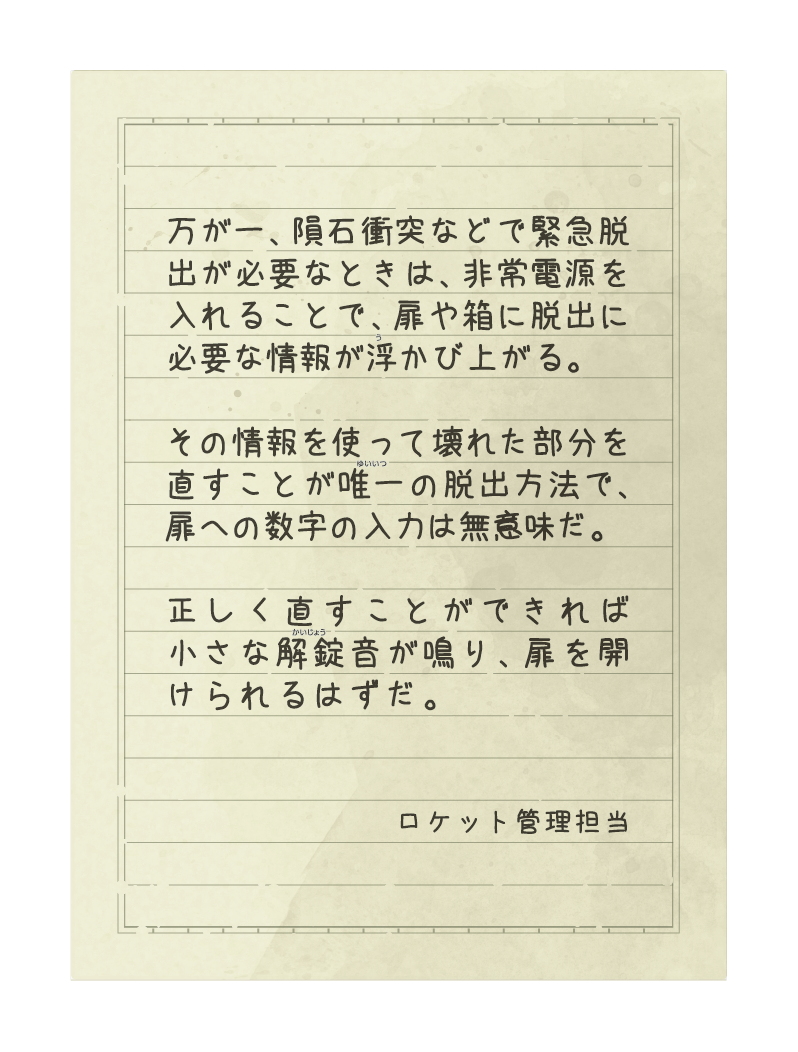 万が一、隕石衝突などで緊急脱
出が必要なときは、非常電源を
入れることで、扉や箱に脱出に
う
必要な情報が浮かび上がる。
その情報を使って壊れた部分を
ゆいいつ
直すことが唯一の脱出方法で、
扉への数字の入力は無意味だ。
正しく直すことができれば
かいじょう
小さな解錠音が鳴り、扉を開
けられるはずだ。
ロケット管理担当